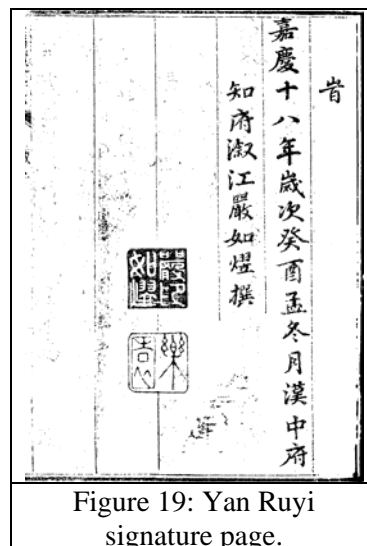 旹
嘉慶十八年歲次癸酉孟冬月漢中府
知府溆江嚴如熤撰
嚴印
如熤
Figure 19: Yan Ruyi
signature page.